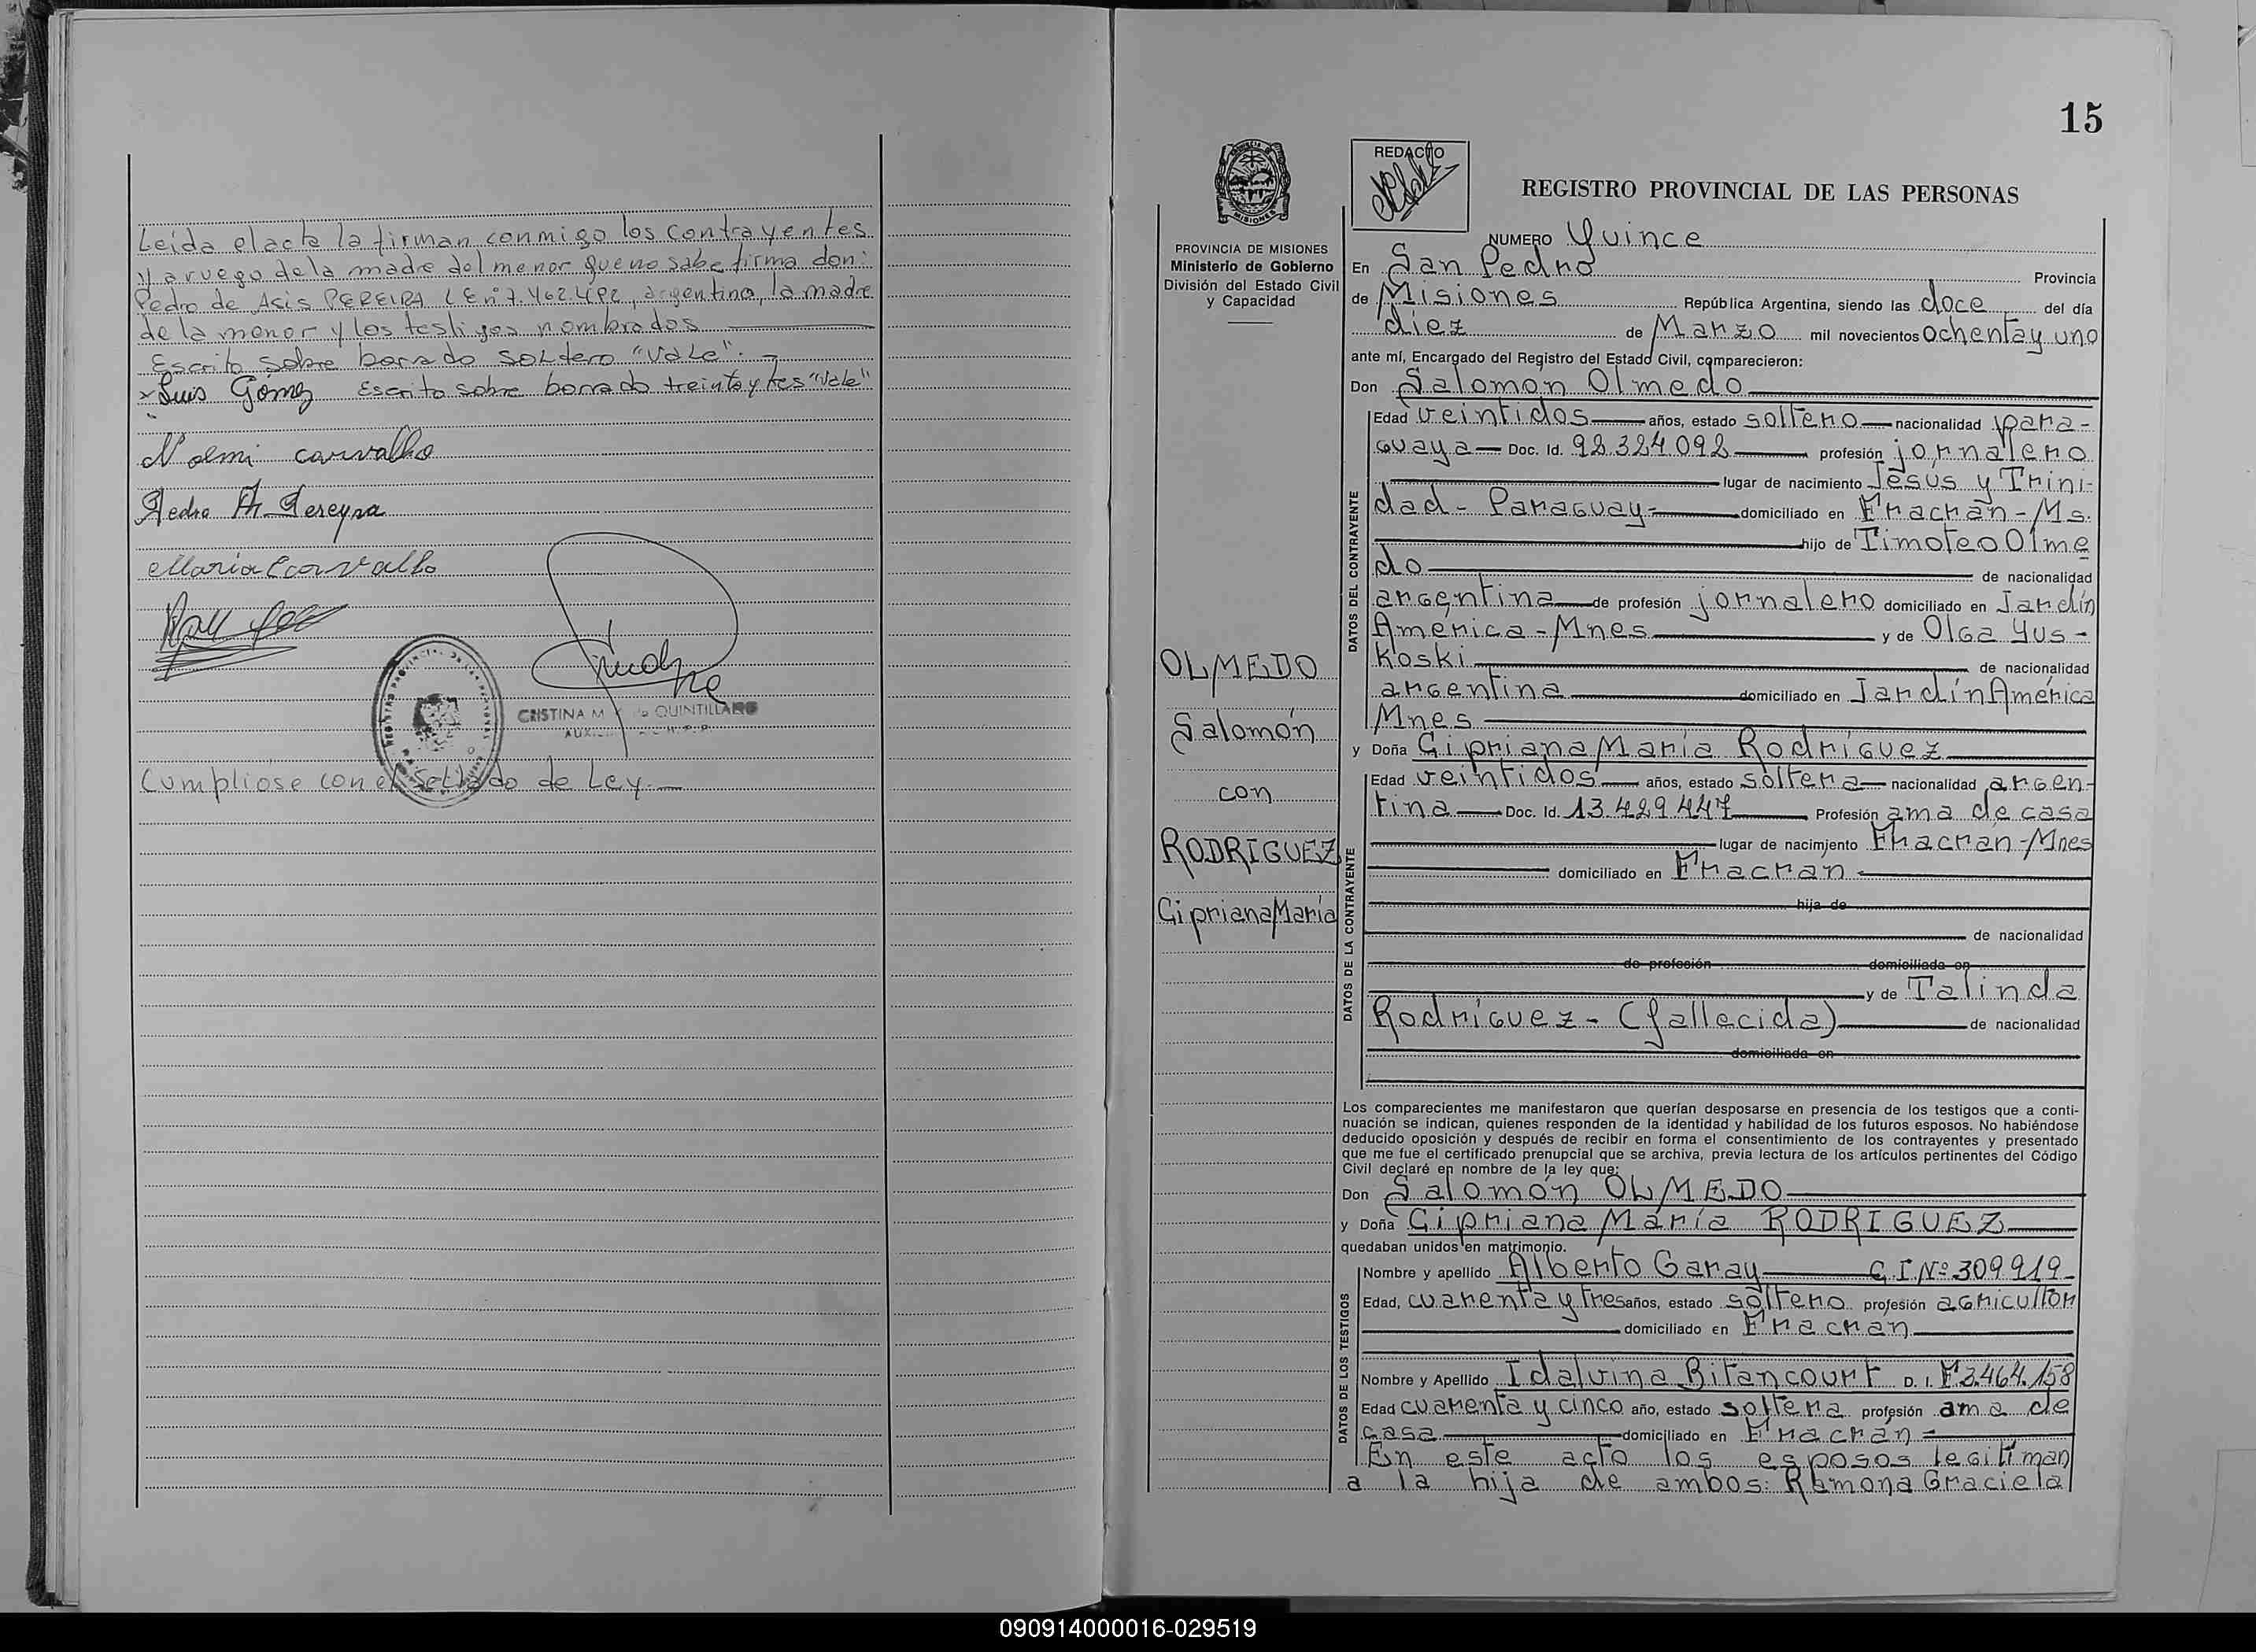 Leida el acta la firman conmigo los contrayentes
y a ruego de la madre del menor que no sabe firma don:
Pedro de Asis PEREIRA L E nº 7.462.492, argentino, la madre
de la menor y los testigos nombrados
Escrito sobre borrado soltero "Vale".
Luis Gómez Escrito sobre borrado treinta y tres "Vale"
Noemi carvalho
Pedro A. Pereyra
Maria E carvalho
CRISTINA M QUINTILLANO
Cumpliose con el Sellado de Ley.
15
REDACTO
REGISTRO PROVINCIAL DE LAS PERSONAS
PROVINCIA DE MISIONES
Ministerio de Gobierno
División del Estado Civil
y Capacidad
NUMERO Quince
En San Pedro Provincia
de Misiones República Argentina, siendo las doce del día
diez de Marzo mil novecientos Ochenta y uno
ante mí, Encargado del Registro del Estado Civil, comparecieron:
Don Salomón Olmedo
Edad veintidos años, estado soltero nacionalidad para-
guaya Doc. Id. 92.324.092 profesión jornalero
lugar de nacimiento Jesús y Trini-
dad - Paraguay- domiciliado en Fracrán - Ms.
hijo de Timoteo Olme
do de nacionalidad
argentina de profesión jornalero domiciliado en Jardín
América - Mnes y de Olga Yus-
koski de nacionalidad
argentina domiciliado en Jardín América
Mnes
y Doña Cipriana María Rodríguez
Edad veintidos años, estado soltera nacionalidad argen-
tina Doc. Id. 13.429.447 Profesión ama de casa
lugar de nacimiento Fracrán - Mnes
domiciliado en Fracran
hija de
de nacionalidad
de profesión domiciliado en
y de Talinda
Rodríguez - (fallecida) de nacionalidad
domiciliada en
DATOS DEL CONTRAYENTE
DATOS DE LA CONTRAYENTE
OLMEDO
Salomón
con
RODRIGUEZ
Cipriana María
Los comparecientes me manifestaron que querían desposarse en presencia de los testigos que a conti-
nuación se indican, quienes responden de la identidad y habilidad de los futuros esposos. No habiéndose
deducido oposición y después de recibir en forma el consentimiento de los contrayentes y presentado
que me fue el certificado prenupcial que se archiva, previa lectura de los artículos pertinentes del Código
Civil declaré en nombre de la ley que:
Don Salomón OLMEDO
y Doña Cipriana María RODRIGUEZ
quedaban unidos en matrimonio.
Nombre y apellido Alberto Garay C.I.Nº 309.919
Edad, cuarenta y tres años, estado soltero profesión agricultor
domiciliado en Fracran
Nombre y Apellido Idalvina Bitancourt D. I. F 3.464.158
Edad cuarenta y cinco año, estado soltera profesión ama de
casa domiciliado en Fracrán
DATOS DE LOS TESTIGOS
En este acto los esposos legitiman
a la hija de ambos: Ramona Graciela
090914000016-029519